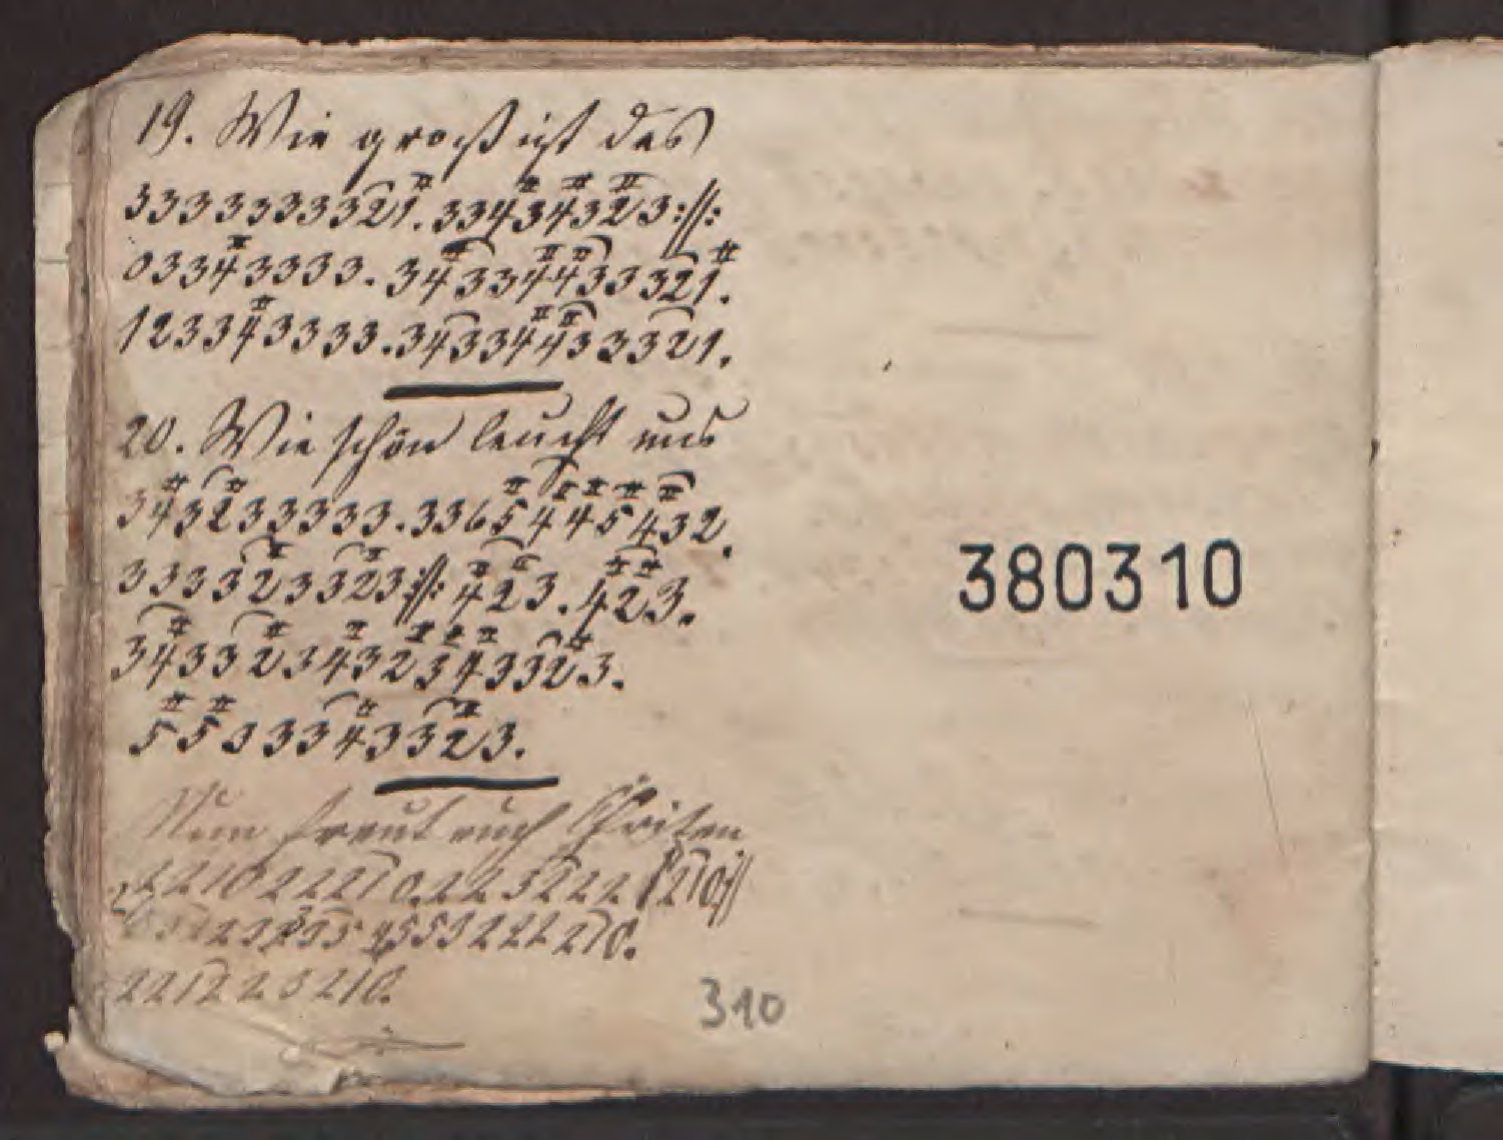 19. Wie groß ist des
33333333321.33434323:||:
03343333.343344333321.
123343333.343344333321.
20. Wie schön leucht uns
343233333.3365445432.
3333233323:||: 423. 423.
343323432343323.
55333433323.
Nun freut euch Christen
221022210.2232222210:||
221223210.
310
380310